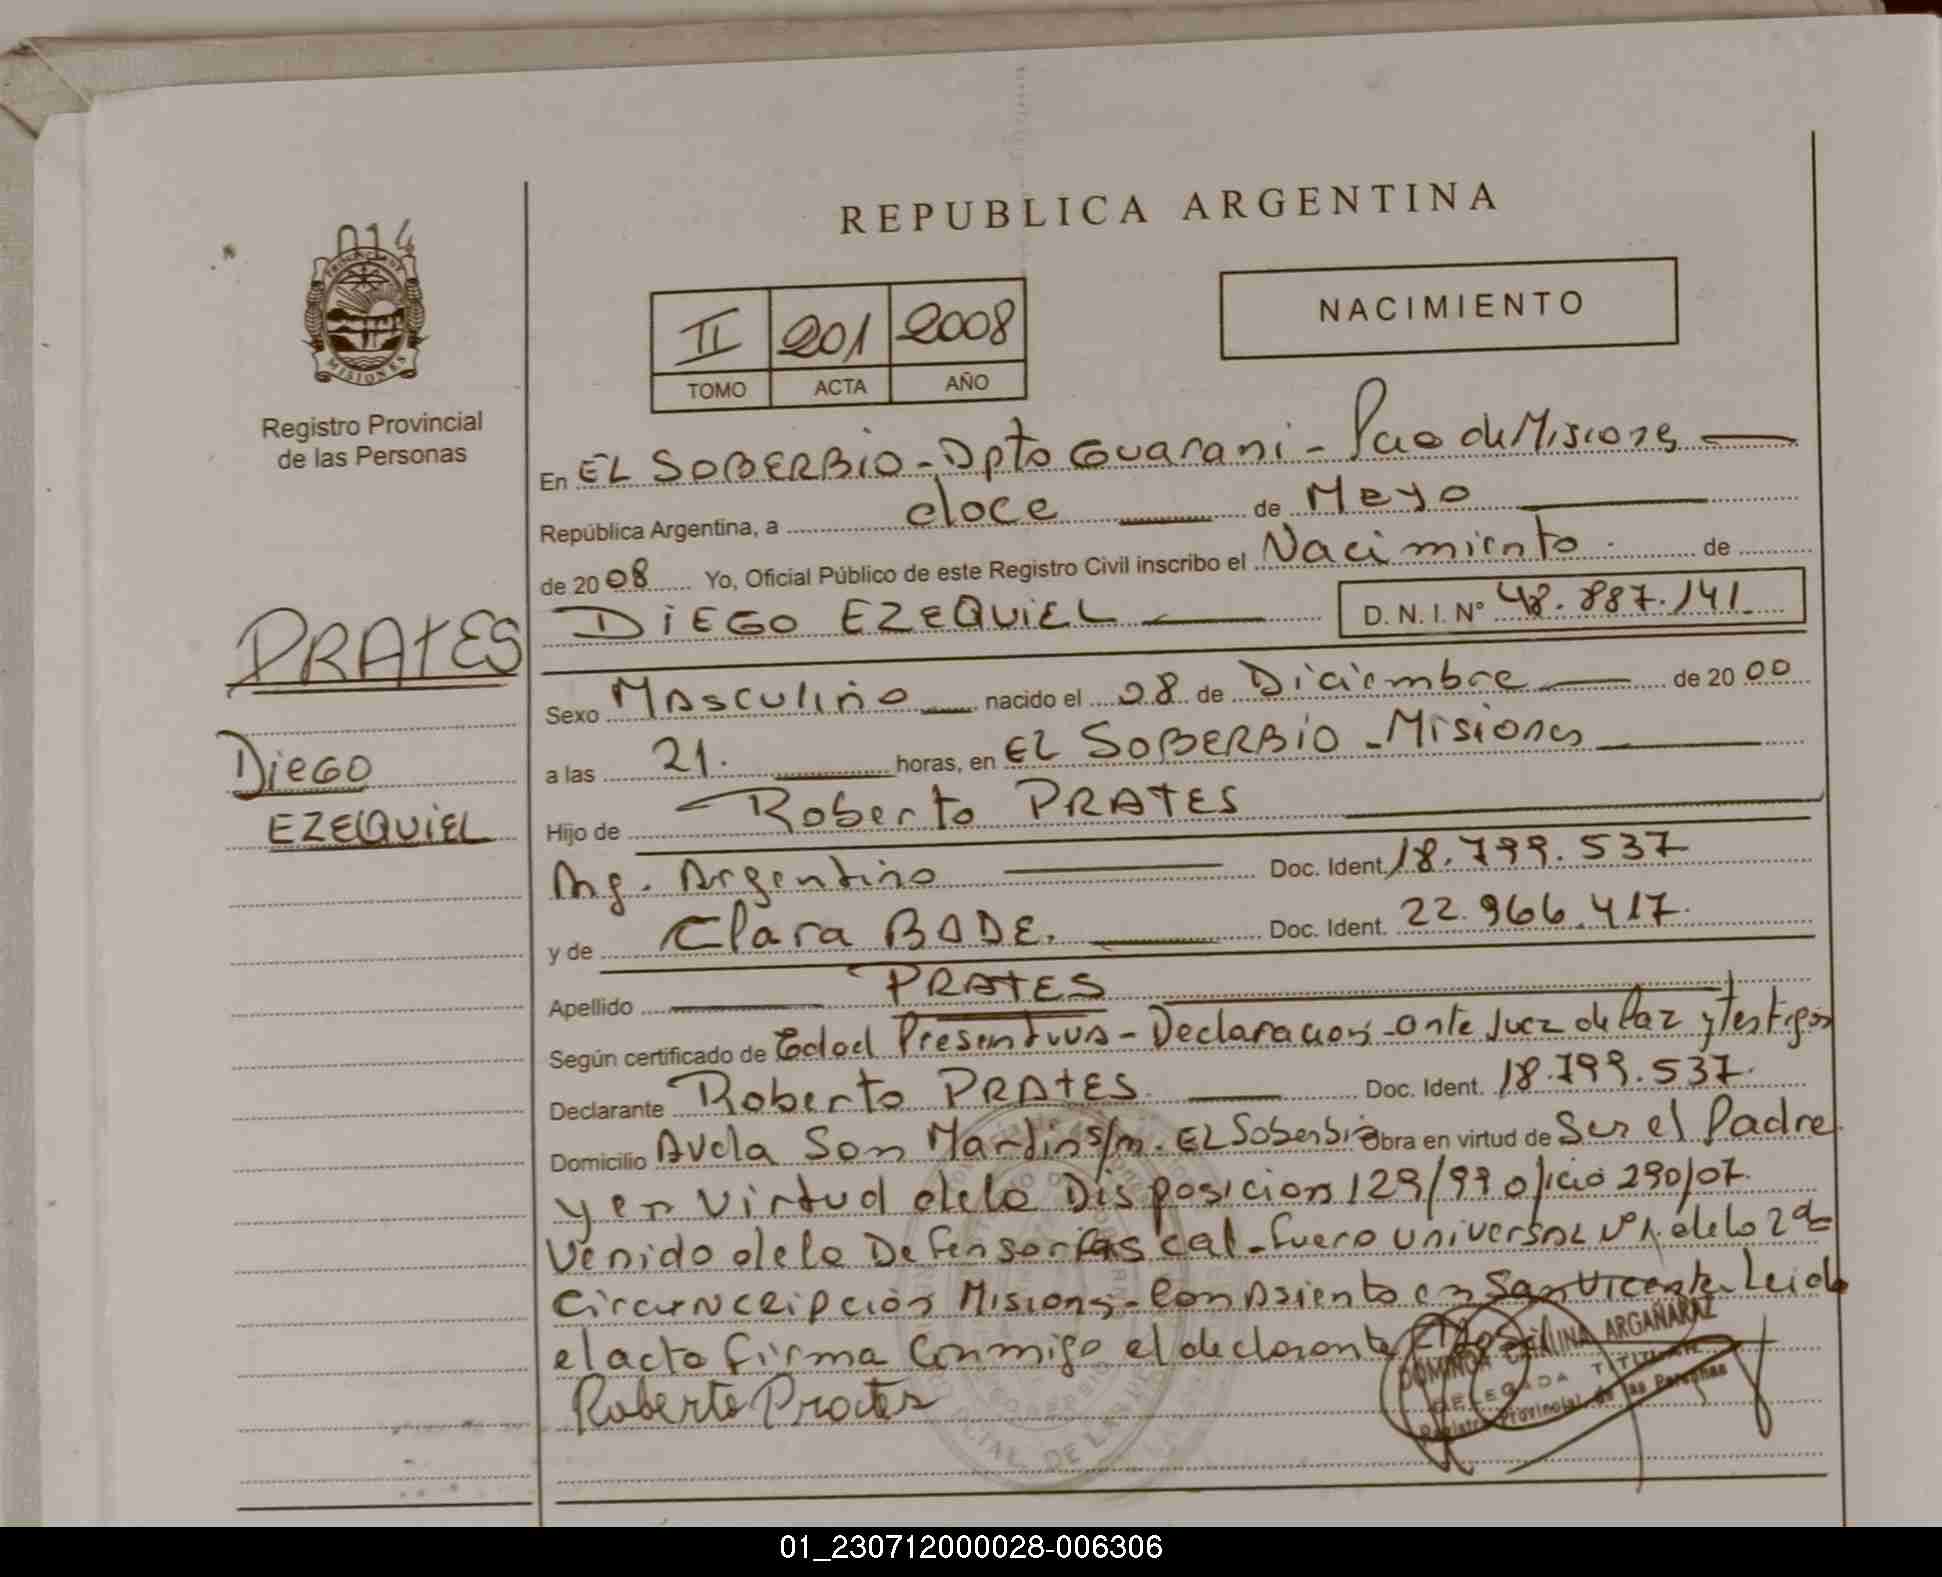 REPUBLICA ARGENTINA
014
MISIONES
Registro Provincial
de las Personas
II 201 2008
TOMO ACTA AÑO
NACIMIENTO
En EL SOBERBIO - Dpto Guarani - Pcia de Misiones
República Argentina, a doce de Mayo
de 2008 Yo, Oficial Público de este Registro Civil inscribo el Nacimiento de
DIEGO EZEQUIEL D. N. I. N° 48.887.141
PRATES
Diego
EZEQUIEL
Sexo Masculino nacido el 08 de Diciembre de 2000
a las 21. horas, en EL SOBERBIO - Misiones
Hijo de Roberto PRATES
Arg. Argentino Doc. Ident. 18.799.537
y de Clara BADE. Doc. Ident. 22.966.417.
Apellido PRATES
Según certificado de Edad Presentiva - Declaracion ante Juez de Paz y testigos
Declarante Roberto PRATES. Doc. Ident. 18.799.537.
Domicilio Avda San Martin s/n. EL Soberbio Obra en virtud de Ser el Padre
y en virtud de la Disposicion 129/99 oficio 290/07.
Venido de la Defensoria - Fuero Universal N° 1. de la 2da
Circunscripción Misiones - Con Asiento en San Vicente. Leida
el acta firma Conmigo el declarante
Roberto Prates
DOMINGA CATALINA ARGAÑARAZ
DELEGADA TITULAR
Registro Provincial de las Personas
01_230712000028-006306